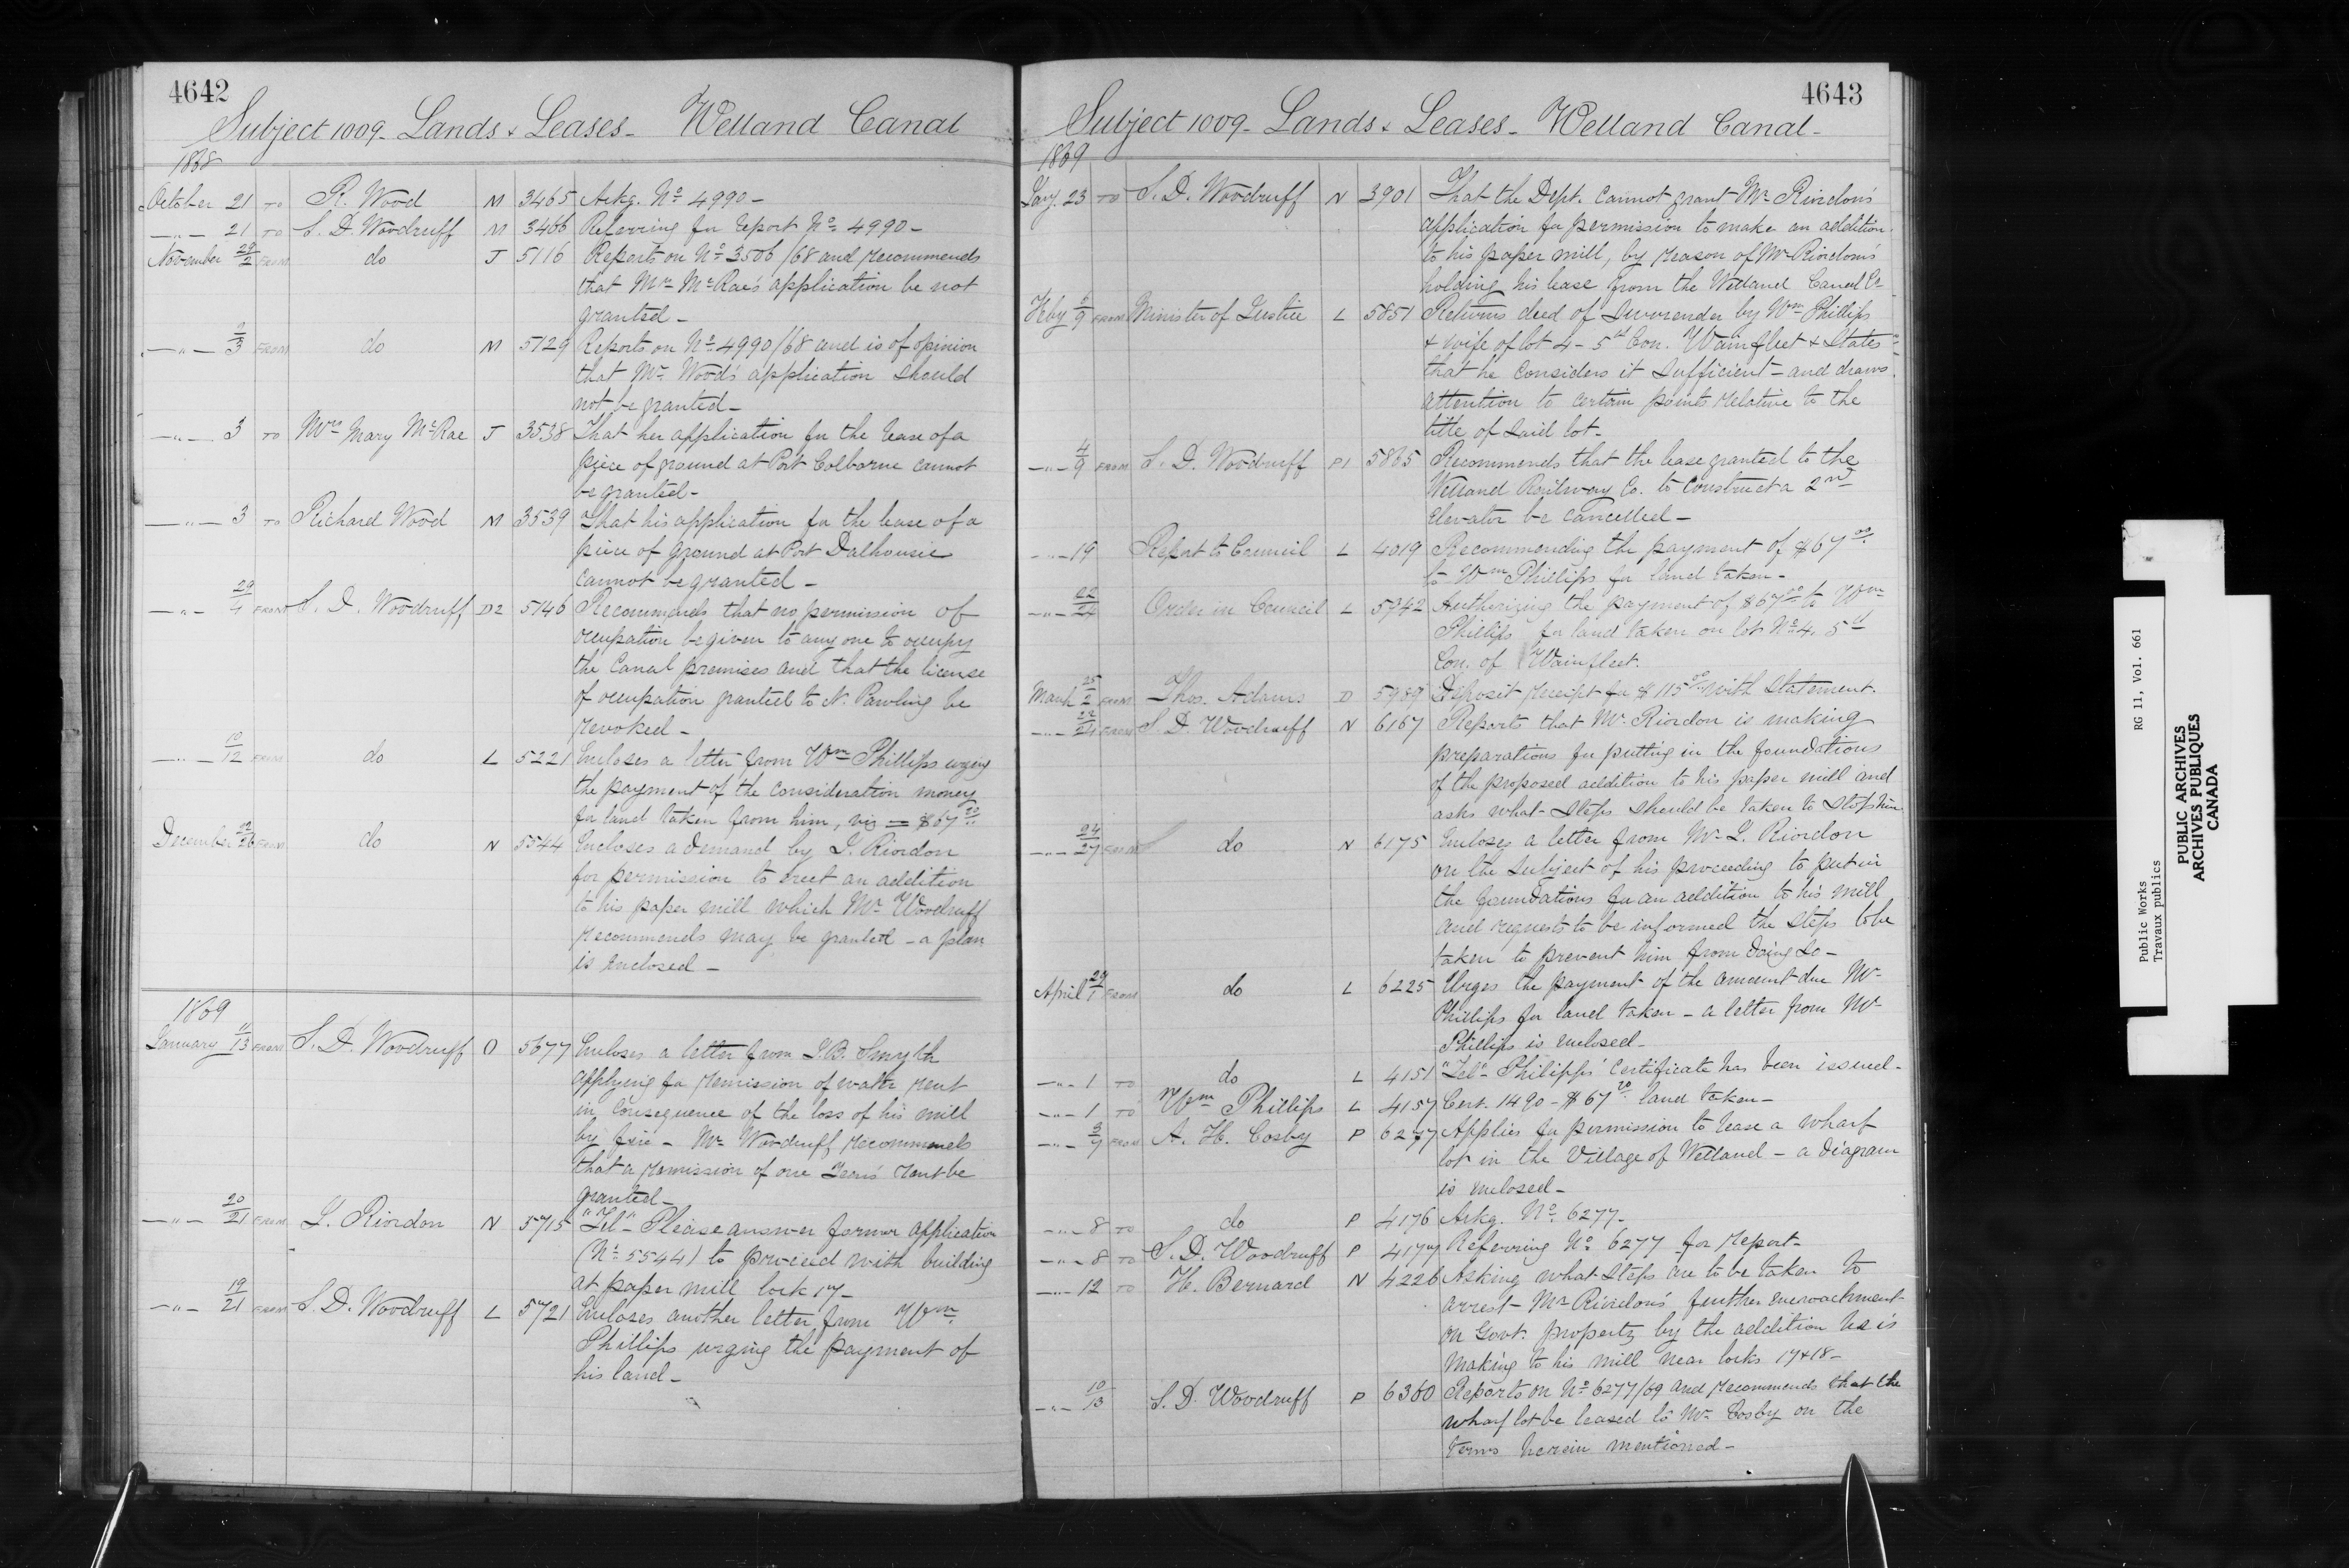 4642
Subject 1009 - Lands & Leases - Welland Canal
1868
October 21 TO R. Wood M 3465 Ackg. No 4990 -
-"- 21 TO S. D. Woodruff M 3466 Referring for report No 4990 -
November 29/2 FROM do J 5116 Reports on No 3506/68 and recommends
that Mrs McRae's application be not
granted -
-"- 2/3 FROM do M 5129 Reports on No 4990/68 and is of opinion
that Mr Wood's application should
not be granted -
-"- 3 TO Mrs Mary McRae J 3538 That her application for the lease of a
piece of ground at Port Colborne cannot
be granted -
-"- 3 TO Richard Wood M 3539 That his application for the lease of a
piece of ground at Port Dalhousie
cannot be granted -
-"- 29/4 FROM S. D. Woodruff D2 5146 Recommends that no permission of
occupation be given to any one to occupy
the Canal premises and that the license
of occupation granted to N. Pawling be
revoked -
-"- 10/12 FROM do L 5221 Encloses a letter from Wm Phillips urging
the payment of the consideration money
for land taken from him, viz = $67.20
December 22/26 FROM do N 5544 Encloses a demand by L. Riordon
for permission to erect an addition
to his paper mill which Mr Woodruff
recommends may be granted - a plan
is enclosed -
1869
January 11/13 FROM S. D. Woodruff O 5677 Encloses a letter from J. B. Smyth
applying for remission of water rent
in consequence of the loss of his mill
by fire - Mr Woodruff recommends
that a remission of one Years' rent be
granted -
-"- 20/21 FROM L. Riordon N 5715 "Tel" - Please answer former application
(No 5544) to proceed with building
at paper mill lock 17 -
-"- 19/21 FROM S. D. Woodruff L 5721 Encloses another letter from Wm
Phillips urging the payment of
his land -
4643
Subject 1009 - Lands & Leases - Welland Canal -
1869
Jany. 23 TO S. D. Woodruff N 3901 That the Dept. cannot grant Mr Riordon's
application for permission to make an addition
to his paper mill, by reason of Mr Riordon's
holding his lease from the Welland Canal Co
Feby 5/9 FROM Minister of Justice L 5851 Returns deed of Surrender by Wm Phillips
& wife of lot 4 - 5th Con. Wainfleet & States
that he considers it sufficient - and draws
attention to certain points relative to the
title of said lot -
-"- 4/9 FROM S. D. Woodruff P1 5865 Recommends that the lease granted to the
Welland Railway Co. to construct a 2nd
elevator be cancelled -
-"- 19 Report to Council L 4019 Recommending the payment of $67
to Wm Phillips for land taken -
-"- 22/24 Order in Council L 5942 Authorizing the payment of $67.20 to Wm
Phillips for land taken on lot No 4, 5th
Con. of Wainfleet.
March 25/2 FROM Thos. Adams D 5989 Deposit receipt for $115 with statement.
-"- 22/24 FROM S D. Woodruff N 6167 Reports that Mr Riordon is making
preparations for putting in the foundations
of the proposed addition to his paper mill and
asks what steps should be taken to stop him
-"- 24/27 FROM do N 6175 Encloses a letter from Mr L. Riordon
on the subject of his proceeding to put in
the foundations for an addition to his mill
and requests to be informed the steps to be
taken to prevent him from doing so -
April 29/1 FROM do L 6225 Urges the payment of the amount due Mr
Phillips for land taken - a letter from Mr
Phillips is enclosed -
-"- 1 TO do L 4151 "Tel" - Philipps' Certificate has been issued -
-"- 1 TO Wm Phillips L 4157 Cert. 1490 - $67.20 land taken -
-"- 3/7 FROM A. H. Cosby P 6277 Applies for permission to lease a wharf
lot in the Village of Welland - a diagram
is enclosed -
-"- 8 TO do P 4176 Ackg. No. 6277 -
-"- 8 TO S. D. Woodruff P 4177 Referring No 6277 for report -
-"- 12 TO H. Bernard N 4226 Asking what steps are to be taken to
arrest Mr Riordon's further encroachment
on Govt. property by the addition he is
making to his mill near locks 17 & 18 -
-"- 10/13 S. D. Woodruff P 6360 Reports on No 6277/69 and recommends that the
wharf lot be leased to Mr Cosby on the
terms herein mentioned -
Public Works RG 11, Vol. 661
Travaux publics
PUBLIC ARCHIVES
ARCHIVES PUBLIQUES
CANADA